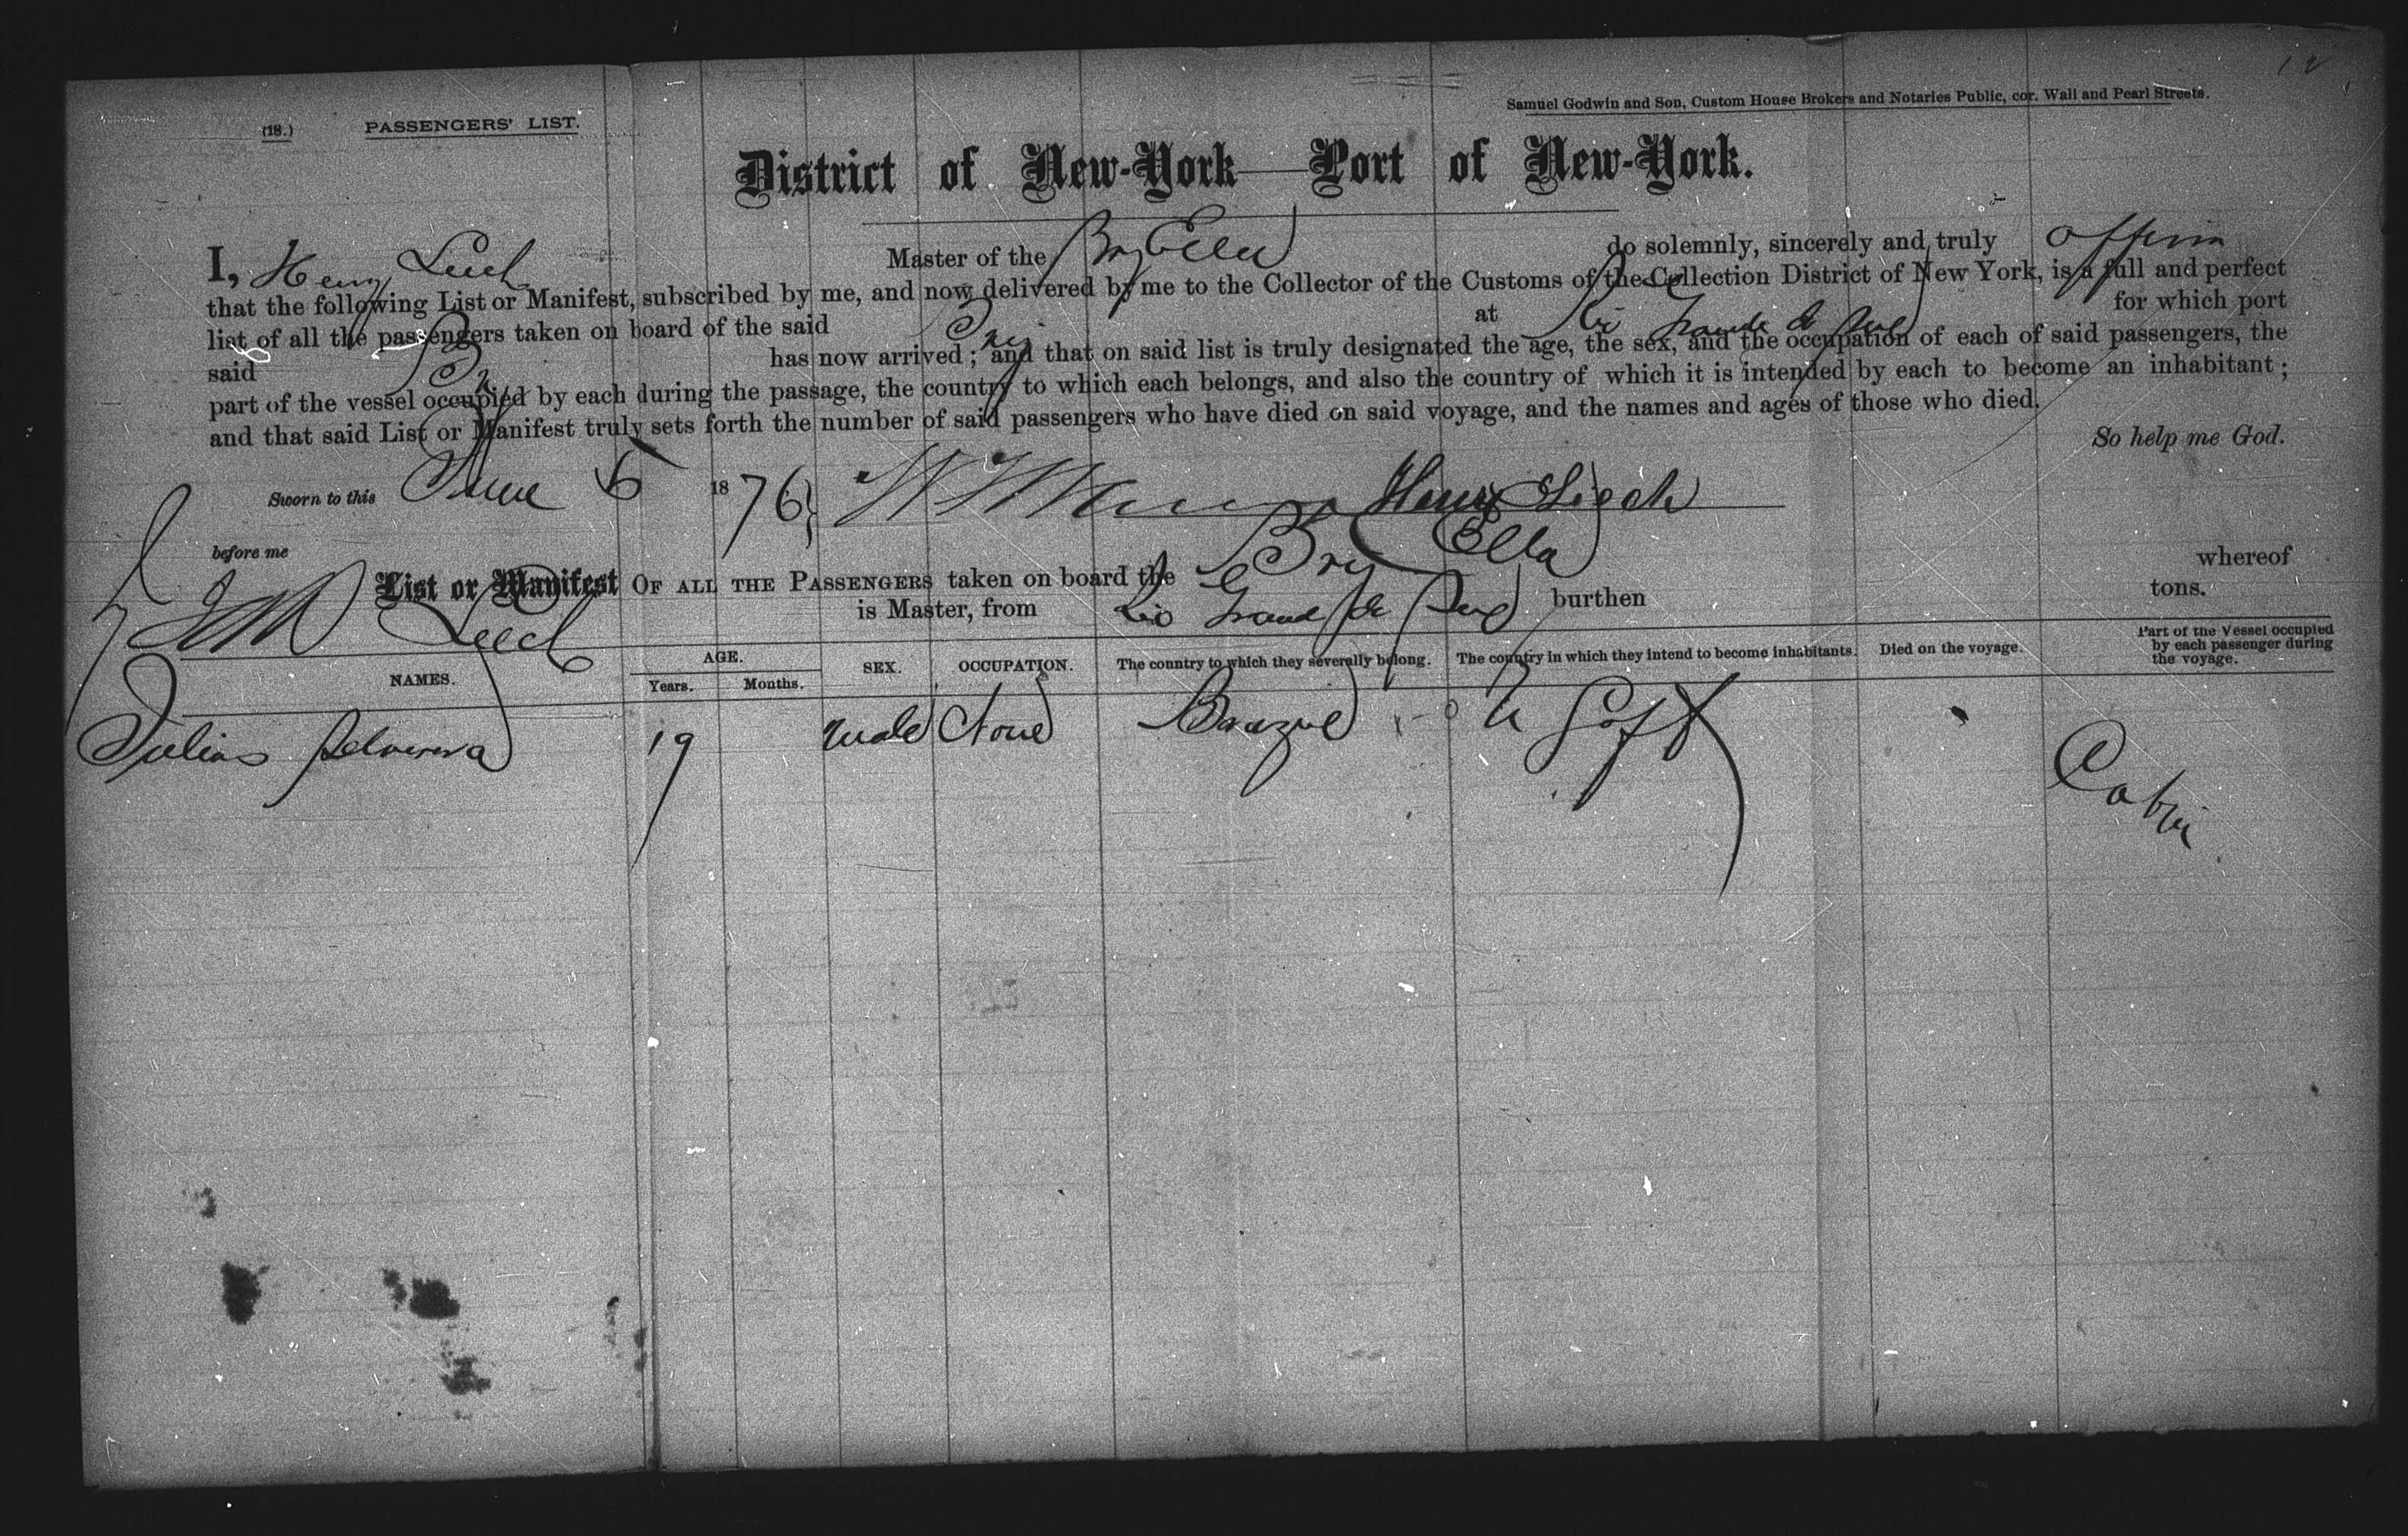 12
Samuel Godwin and Son, Custom House Brokers and Notaries Public, cor. Wall and Pearl Streets.
(18.) PASSENGERS' LIST.
District of New-York—Port of New-York.
I, Henry Leech Master of the Brig Ella do solemnly, sincerely and truly affirm
that the following List or Manifest, subscribed by me, and now delivered by me to the Collector of the Customs of the Collection District of New York, is a full and perfect
list of all the passengers taken on board of the said Brig at Rio Grande do Sul for which port
said Brig has now arrived; and that on said list is truly designated the age, the sex, and the occupation of each of said passengers, the
part of the vessel occupied by each during the passage, the country to which each belongs, and also the country of which it is intended by each to become an inhabitant;
and that said List or Manifest truly sets forth the number of said passengers who have died on said voyage, and the names and ages of those who died.
So help me God.
Sworn to this June 6 1876 Henry Leech
before me
List or Manifest OF ALL THE PASSENGERS taken on board the Brig Ella whereof
Leech is Master, from Rio Grande do Sul burthen tons.
NAMES. AGE. Years. Months. SEX. OCCUPATION. The country to which they severally belong. The country in which they intend to become inhabitants. Died on the voyage. Part of the Vessel occupied by each passenger during the voyage.
Julius 19 male None Brazil Cabin